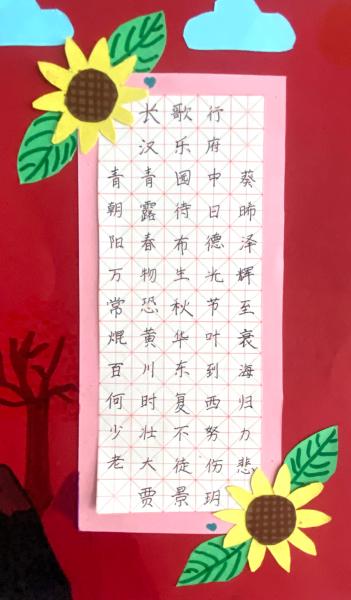 长歌行
汉乐府
青青园中葵
朝露待日晞
阳春布德泽
万物生光辉
常恐秋节至
焜黄华叶衰
百川东到海
何时复西归
少壮不努力
老大徒伤悲
贾景玥